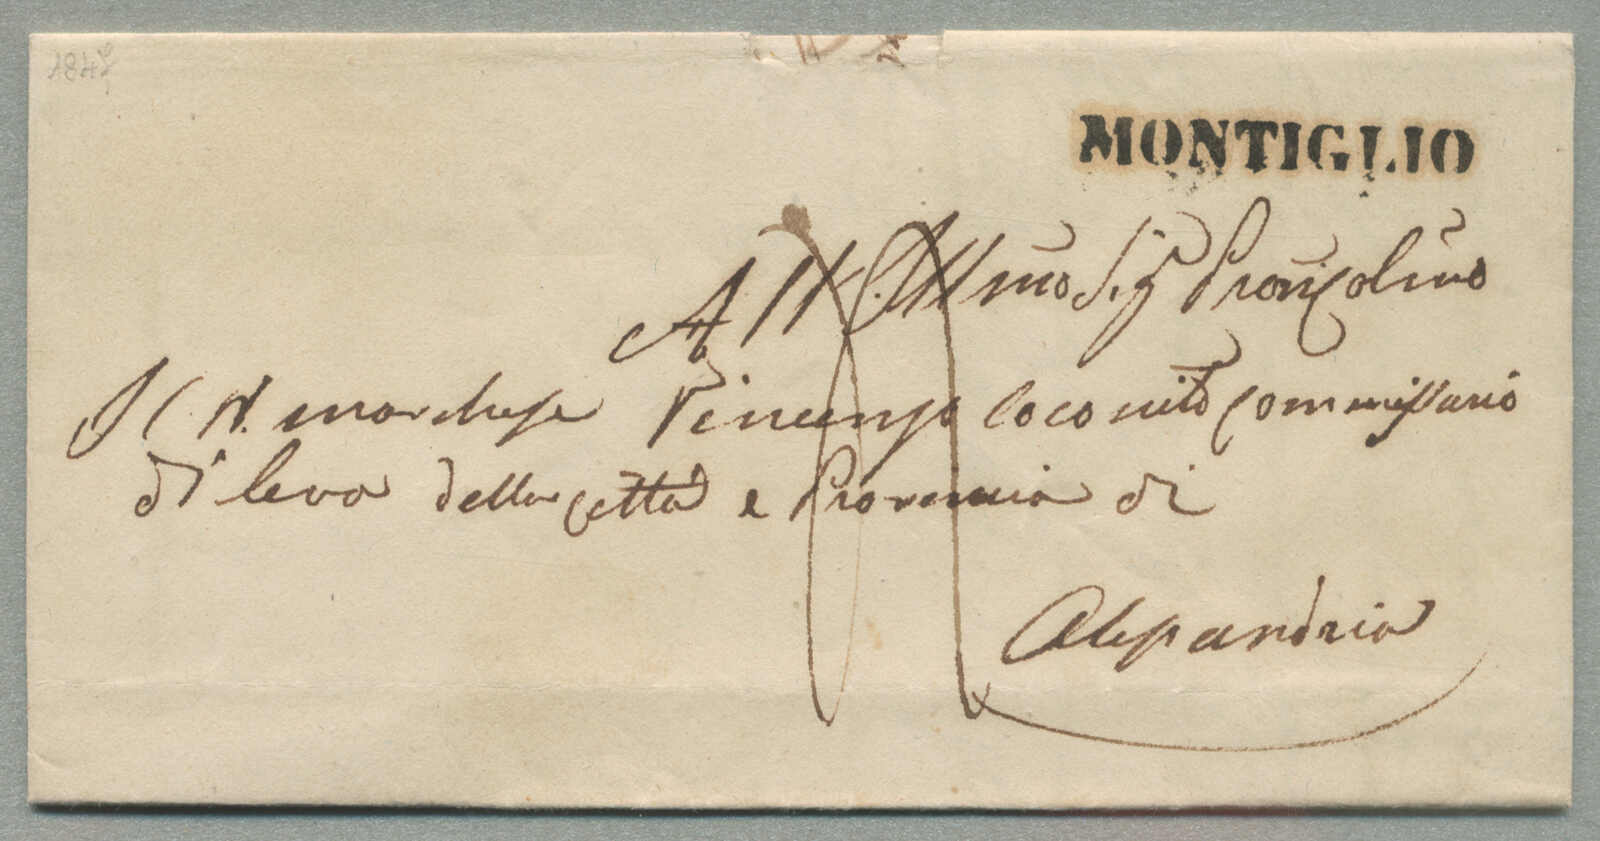 1847
MONTIGLIO
All Illmo Sig Pron Colmo
Il marchese Vincenzo commissario
di leva della città e Provincia di
Alessandria